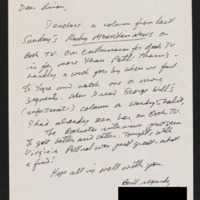 Dear Brian,
I enclose a column from last
Sunday's
Book TV. Our enthusiasm for Book TV
is for more than
hardly a week goes by when we fail
to tape and watch one or more
segments. When I read George Will's
column on Wendy Shalit,
I had already seen her on Book TV.
The Booknotes interviews
to get better and better. Tonight, with
Virginia Postrel was just great - what
a find!
Hope all is well with you.
Best regards,